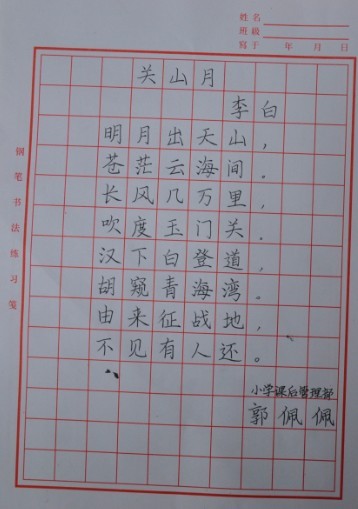 姓名
班级
写于 年 月 日
关山月
李白
明月出天山，
苍茫云海间。
长风几万里，
吹度玉门关。
汉下白登道，
胡窥青海湾。
由来征战地，
不见有人还。
小学课后管理部
郭佩佩
钢笔书法练习笺